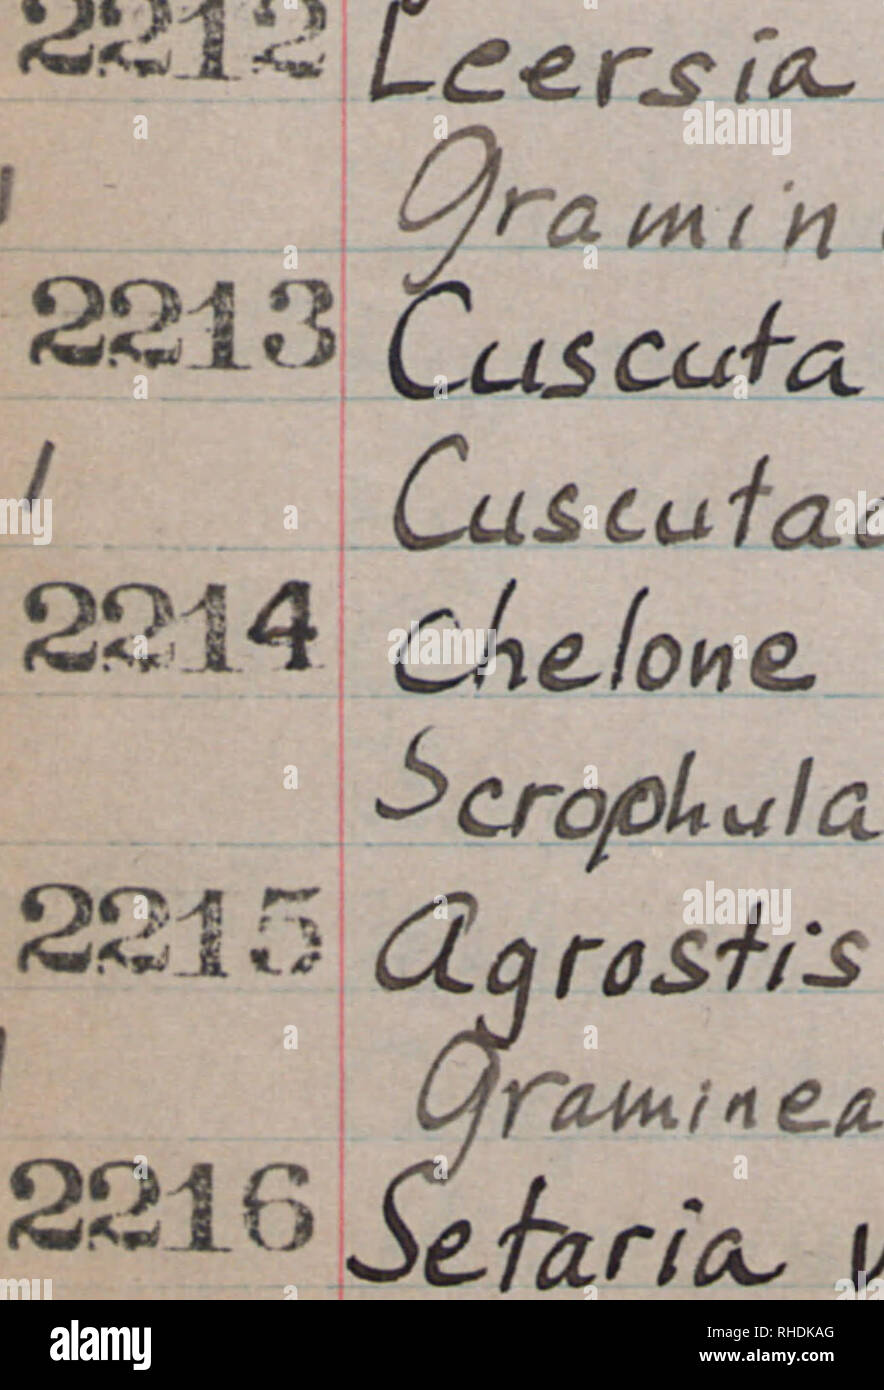 2212 Leersia
Gramin
2213 Cuscuta
Cuscutac
2214 Chelone
Scrophula
2215 Agrostis
Graminea
2216 Setaria v
alamy
Image ID: RHDKAG
www.alamy.com